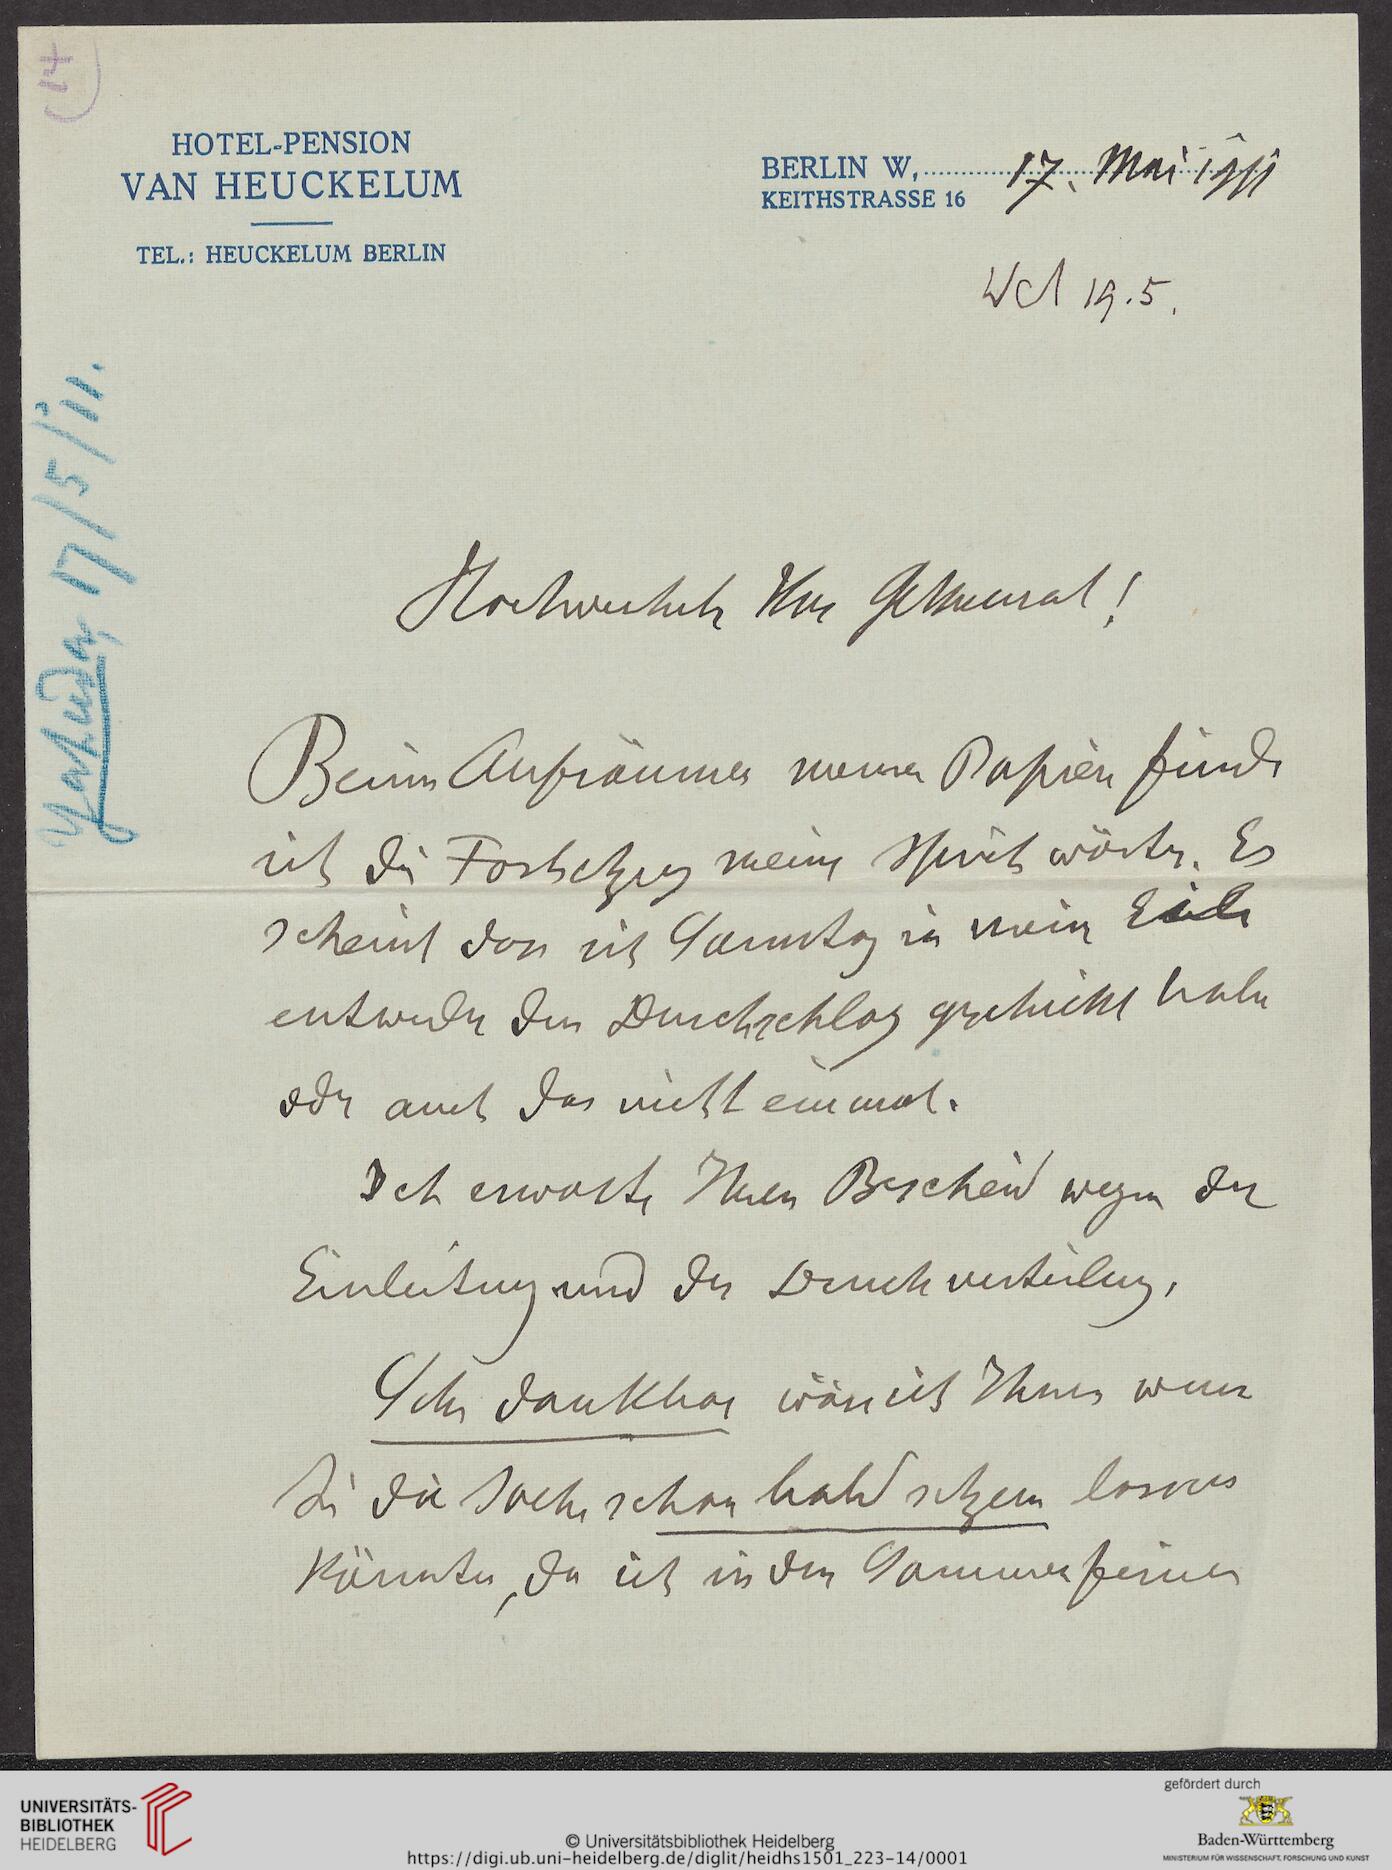 HOTEL-PENSION
VAN HEUCKELUM
TEL.: HEUCKELUM BERLIN
BERLIN W, 17. Mai 1911
KEITHSTRASSE 16
19.5.
Yahuda, 17/5/11.
Hochverehrter Herr Geheimrat!
Beim Aufräumen meiner Papiere finde
ich die Fortsetzung meiner Sprichwörter. Es
scheint dass ich Samstag in meiner Eile
entweder den Durchschlag geschickt habe
oder auch das nicht einmal.
Ich erwarte Ihren Bescheid wegen der
Einleitung und der Druckverteilung.
Sehr dankbar wäre ich Ihnen wenn
Sie die Sache schon bald setzen lassen
könnten, da ich in den Sommerferien
UNIVERSITÄTS-
BIBLIOTHEK
HEIDELBERG
© Universitätsbibliothek Heidelberg
https://digi.ub.uni-heidelberg.de/diglit/heidhs1501_223-14/0001
gefördert durch
Baden-Württemberg
MINISTERIUM FÜR WISSENSCHAFT, FORSCHUNG UND KUNST